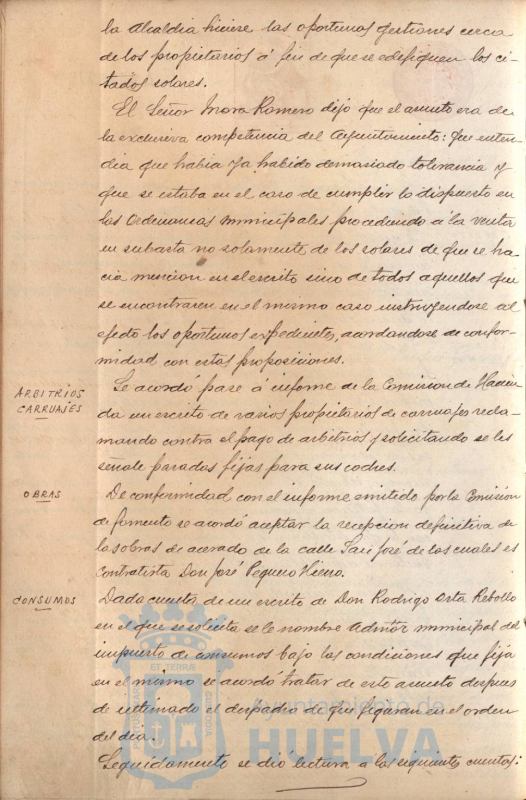 la Alcaldia hiciese las oportunas gestiones cerca
de los propietarios á fin de que se edifiquen los ci-
tados solares.
El Señor Mora Romero dijo que el asunto era de
la exclusiva competencia del Ayuntamiento: Que enten-
dia que habia ya habido demasiada tolerancia y
que se estaba en el caso de cumplir lo dispuesto en
las Ordenanzas Municipales procediendo á la venta
en subasta no solamente de los solares de que se ha-
cia mencion en el escrito sino de todos aquellos que
se encontraren en el mismo caso instruyendose al
efecto los oportunos expedientes, acordandose de confor-
midad con estas proposiciones.
ARBITRIOS
CARRUAJES
Se acordó pase á informe de la Comision de Hacien-
da un escrito de varios propietarios de carruajes recla-
mando contra el pago de arbitrios y solicitando se les
señale paradas fijas para sus coches.
OBRAS
De conformidad con el informe emitido por la Comision
de fomento se acordó aceptar la recepcion definitiva de
las obras de acerado de la calle San José de las cuales es
Contratista Don José Peguero Hierro.
CONSUMOS
Dada cuenta de un escrito de Don Rodrigo Orta Rebollo
en el que se solicita se le nombre Admor municipal del
impuesto de consumos bajo las condiciones que fija
en el mismo se acordó tratar de este asunto despues
de ultimado el despacho de que figuran en el orden
del dia.
Seguidamente se dió lectura a las siguientes cuentas:
PORTUS MARIS
ET TERRÆ
CUSTODIA
Ayuntamiento de
HUELVA